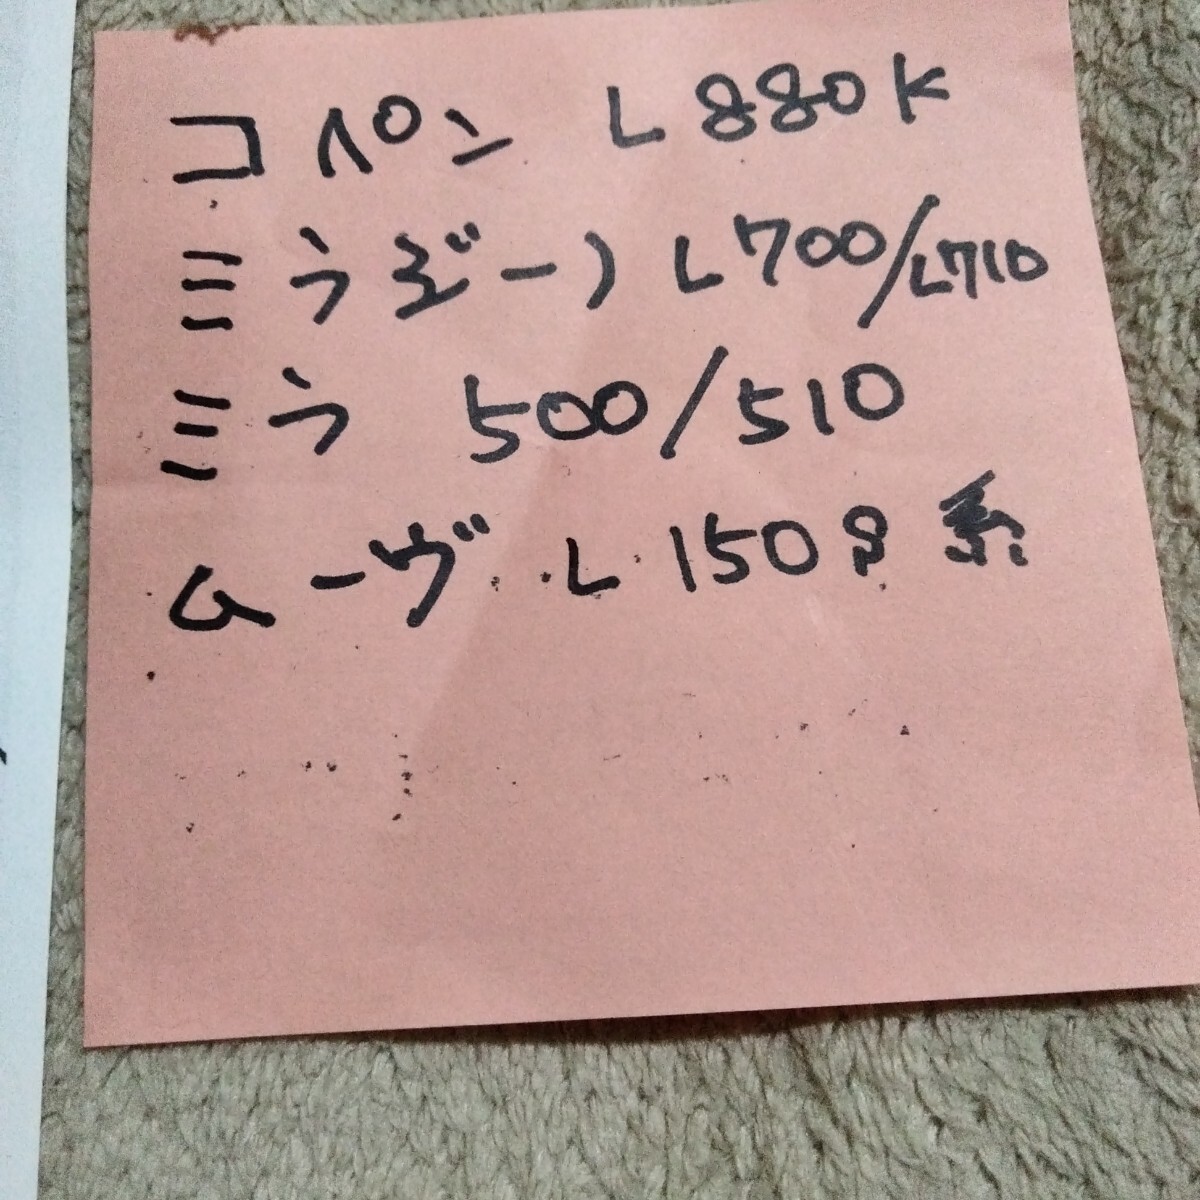 コペン L880K
ミラジーノ L700/L710
ミラ 500/510
ムーヴ L150S系